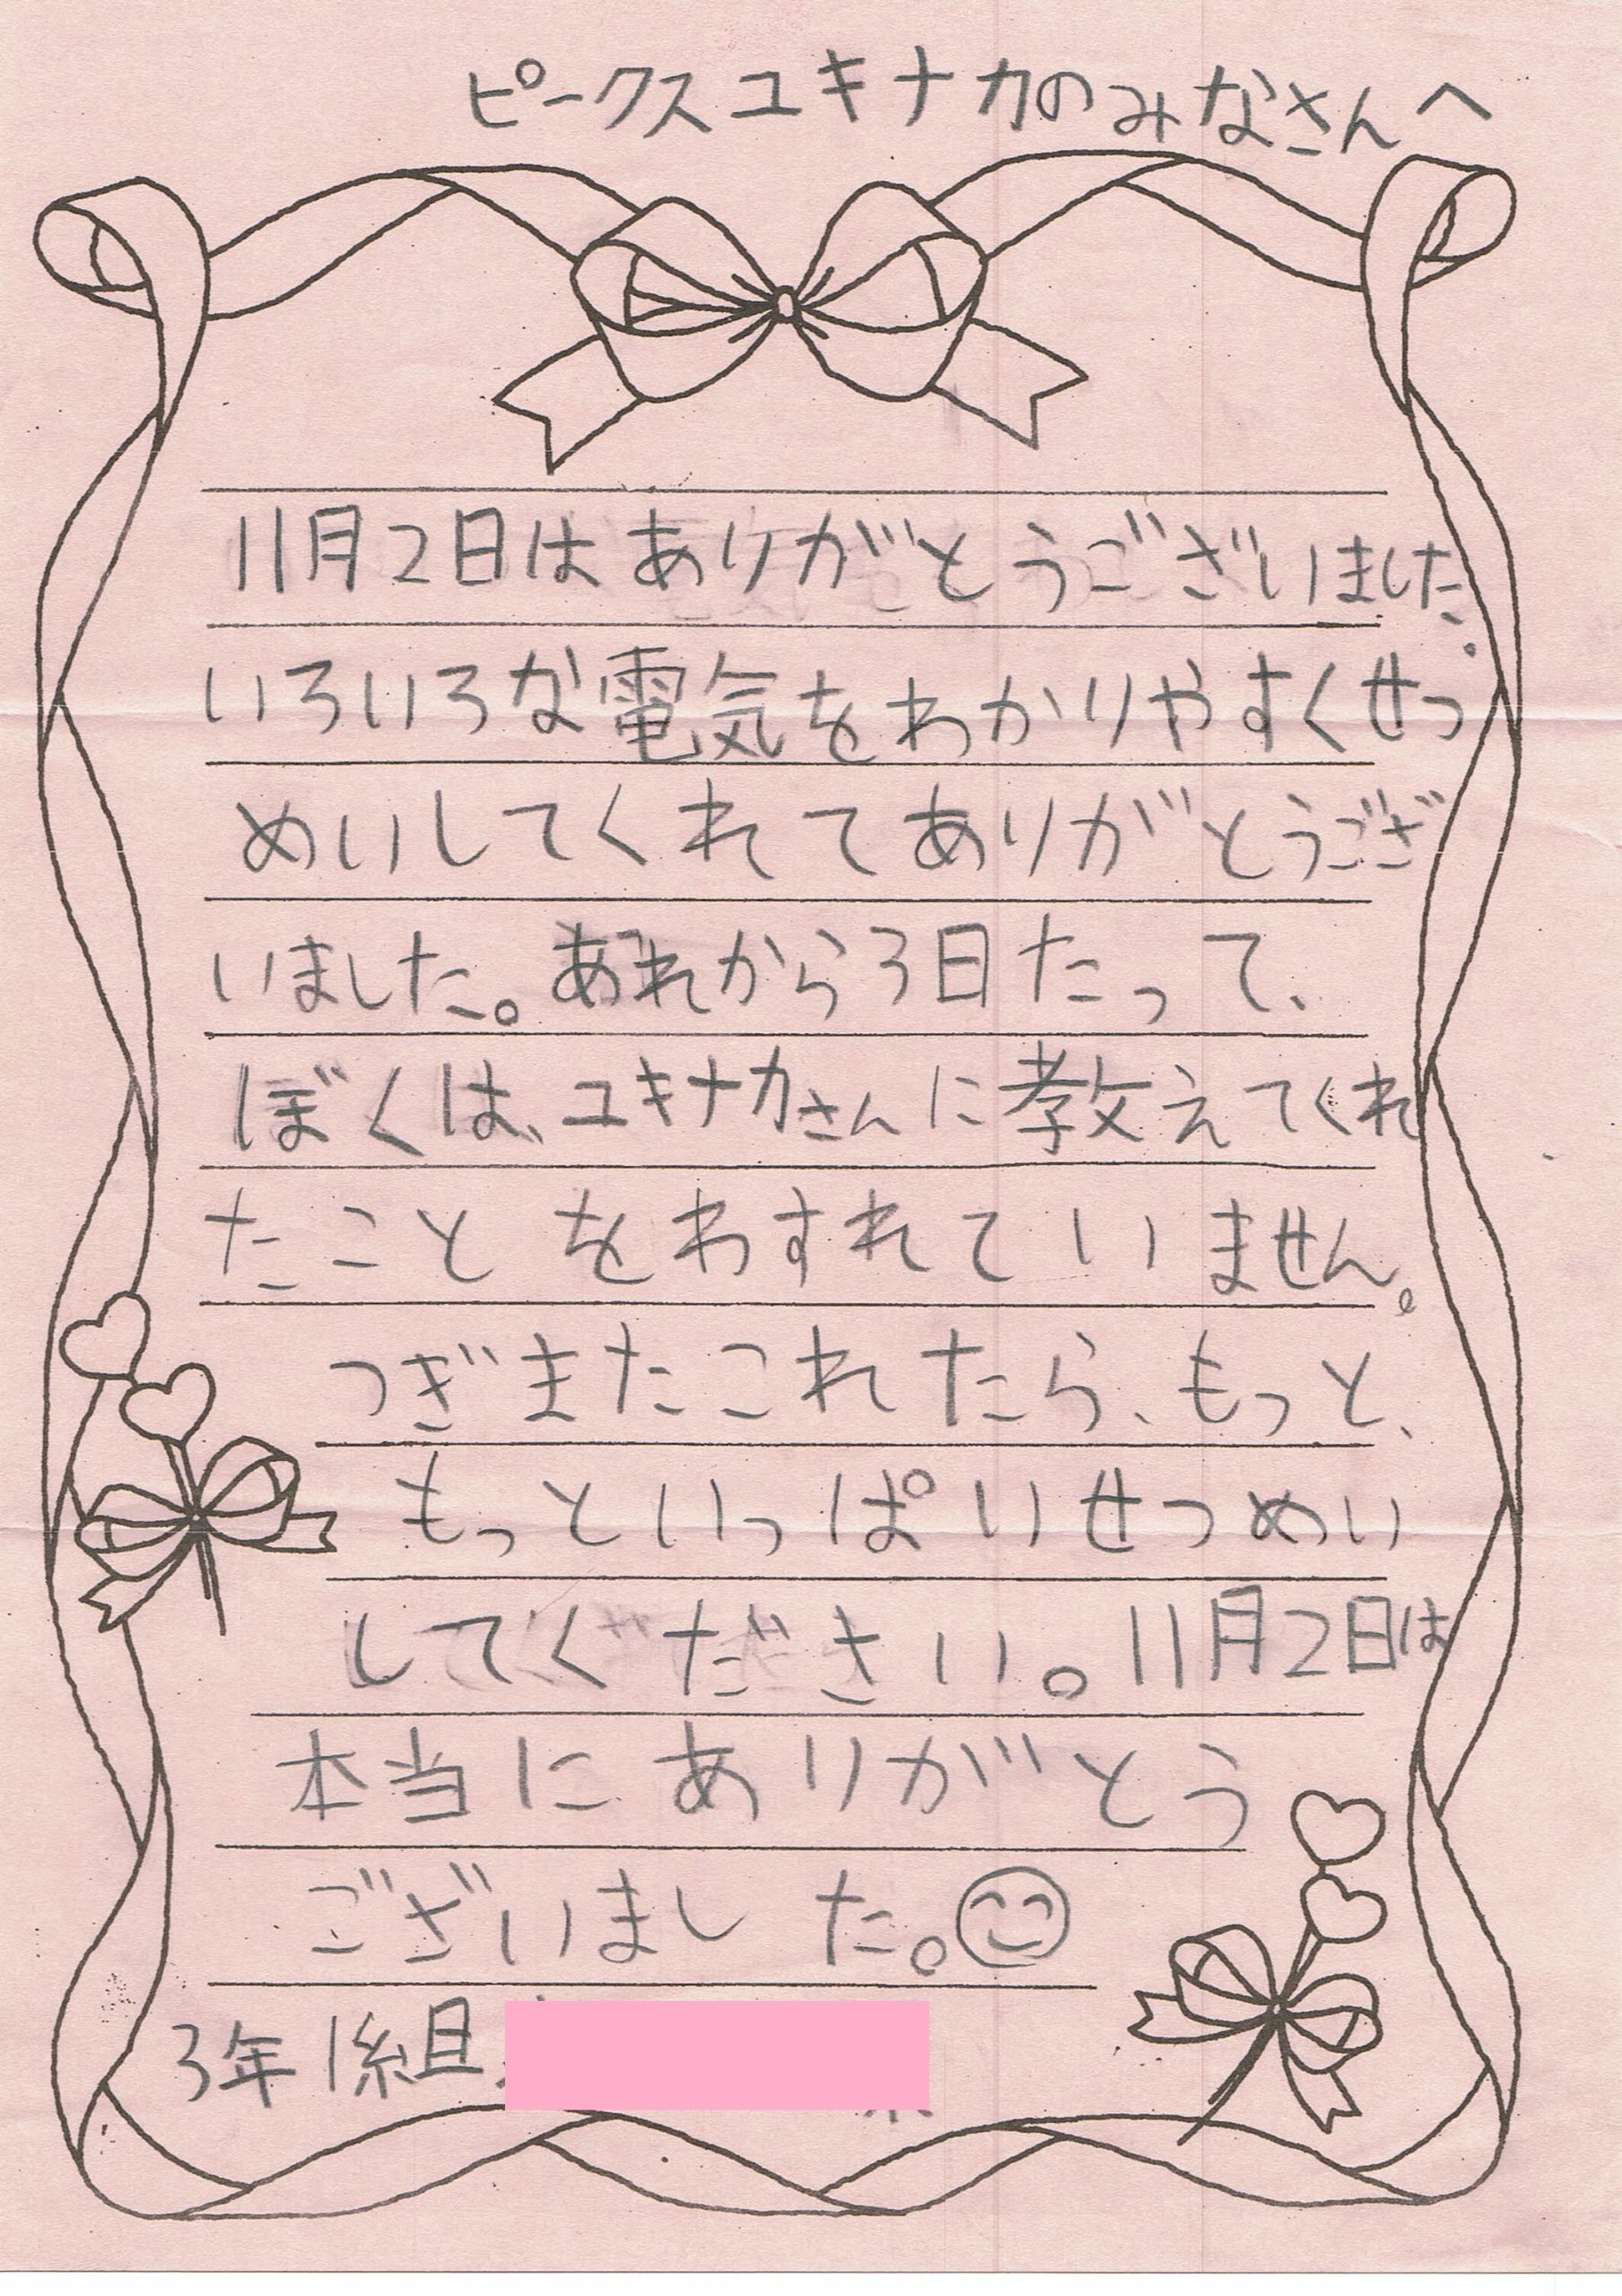 ピークスユキナカのみなさんへ
11月2日はありがとうございました。
いろいろな電気をわかりやすくせつ
めいしてくれてありがとうござ
いました。あれから3日たって、
ぼくは、ユキナカさんに教えてくれ
たことをわすれていません。
つぎまたこれたら、もっと、
もっといっぱいせつめい
してください。11月2日は
本当にありがとう
ございました。
3年1組